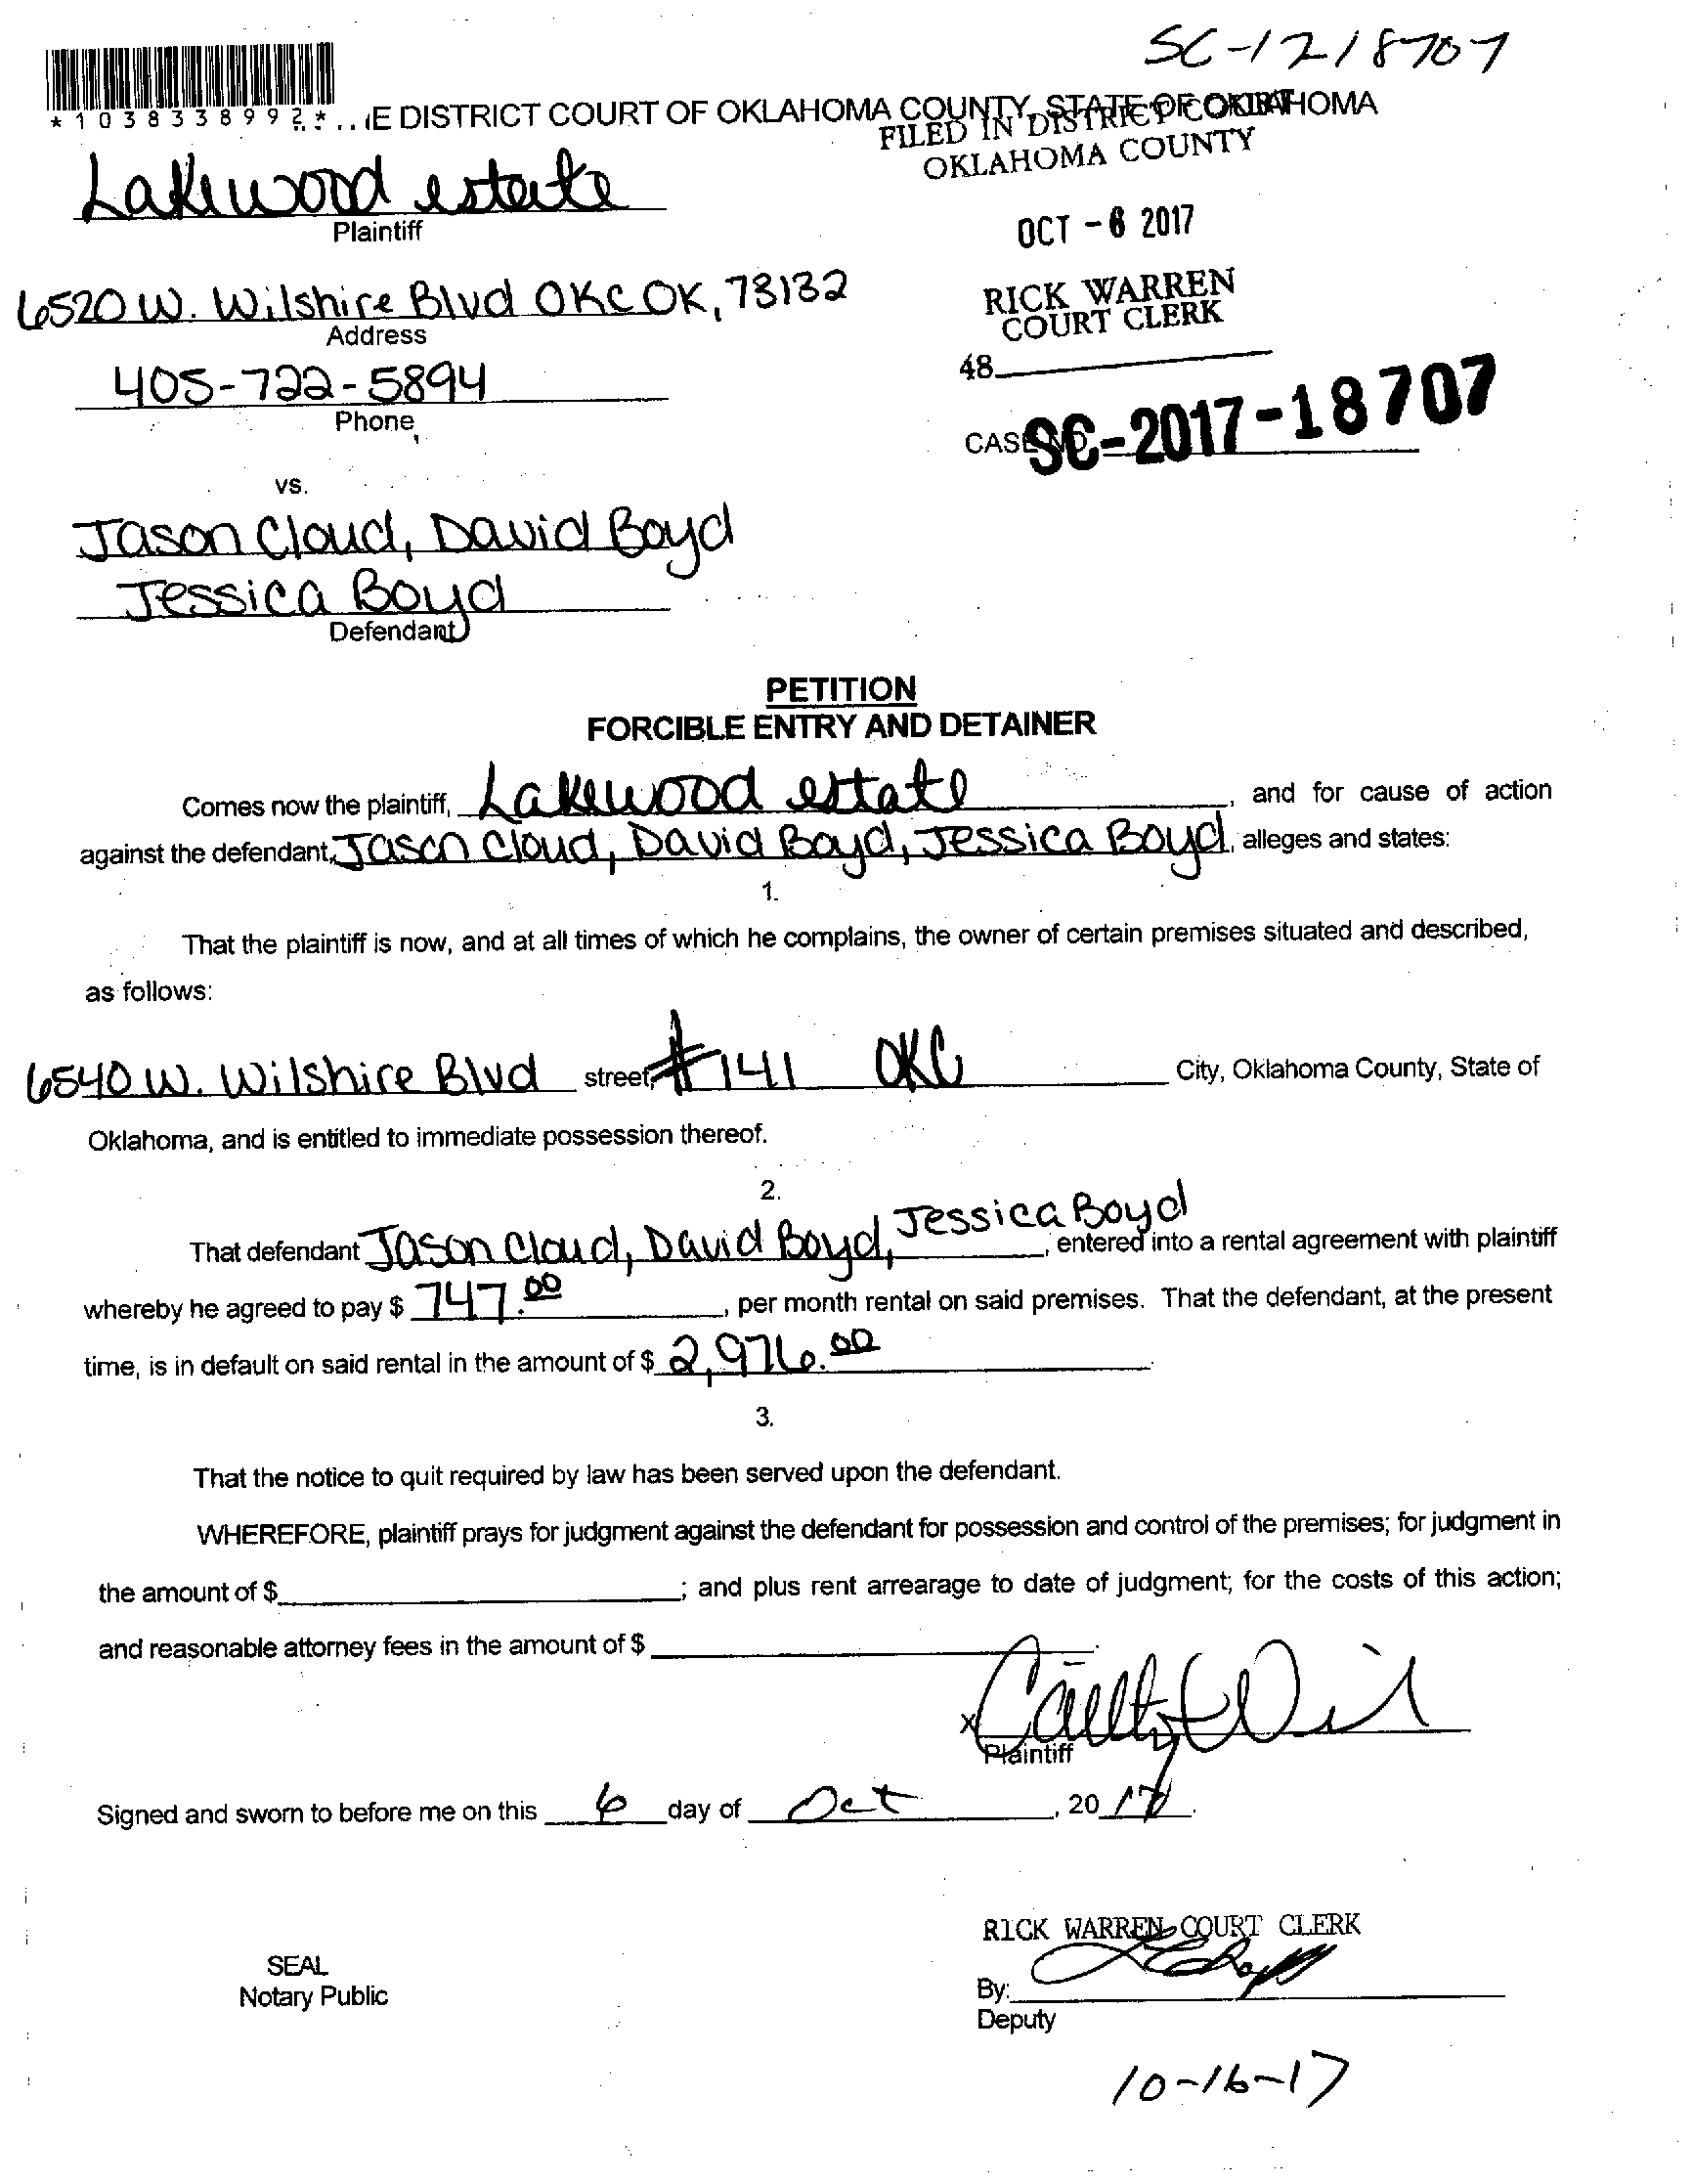 SC-1718707
*1038338992*
IE DISTRICT COURT OF OKLAHOMA COUNTY, STATE OF OKLAHOMA
FILED IN DISTRICT COURT
OKLAHOMA COUNTY
Lakewood estate
Plaintiff
OCT - 6 2017
6520 W. Wilshire Blvd OKC OK, 73132
Address
RICK WARREN
COURT CLERK
405-722-5894
Phone
48
CASE NO. SC-2017-18707
vs.
Jason Cloud, David Boyd
Jessica Boyd
Defendant
PETITION
FORCIBLE ENTRY AND DETAINER
Comes now the plaintiff, Lakewood estate, and for cause of action
against the defendant, Jason Cloud, David Boyd, Jessica Boyd, alleges and states:
1.
That the plaintiff is now, and at all times of which he complains, the owner of certain premises situated and described,
as follows:
6540 W. Wilshire Blvd street, #141 OKC City, Oklahoma County, State of
Oklahoma, and is entitled to immediate possession thereof.
2.
That defendant Jason Cloud, David Boyd, Jessica Boyd, entered into a rental agreement with plaintiff
whereby he agreed to pay $ 747.00, per month rental on said premises. That the defendant, at the present
time, is in default on said rental in the amount of $ 2,976.00
3.
That the notice to quit required by law has been served upon the defendant.
WHEREFORE, plaintiff prays for judgment against the defendant for possession and control of the premises; for judgment in
the amount of $ ; and plus rent arrearage to date of judgment; for the costs of this action;
and reasonable attorney fees in the amount of $
X
Plaintiff
Signed and sworn to before me on this 6 day of Oct, 20 17.
RICK WARREN COURT CLERK
SEAL
Notary Public
By:
Deputy
10-16-17